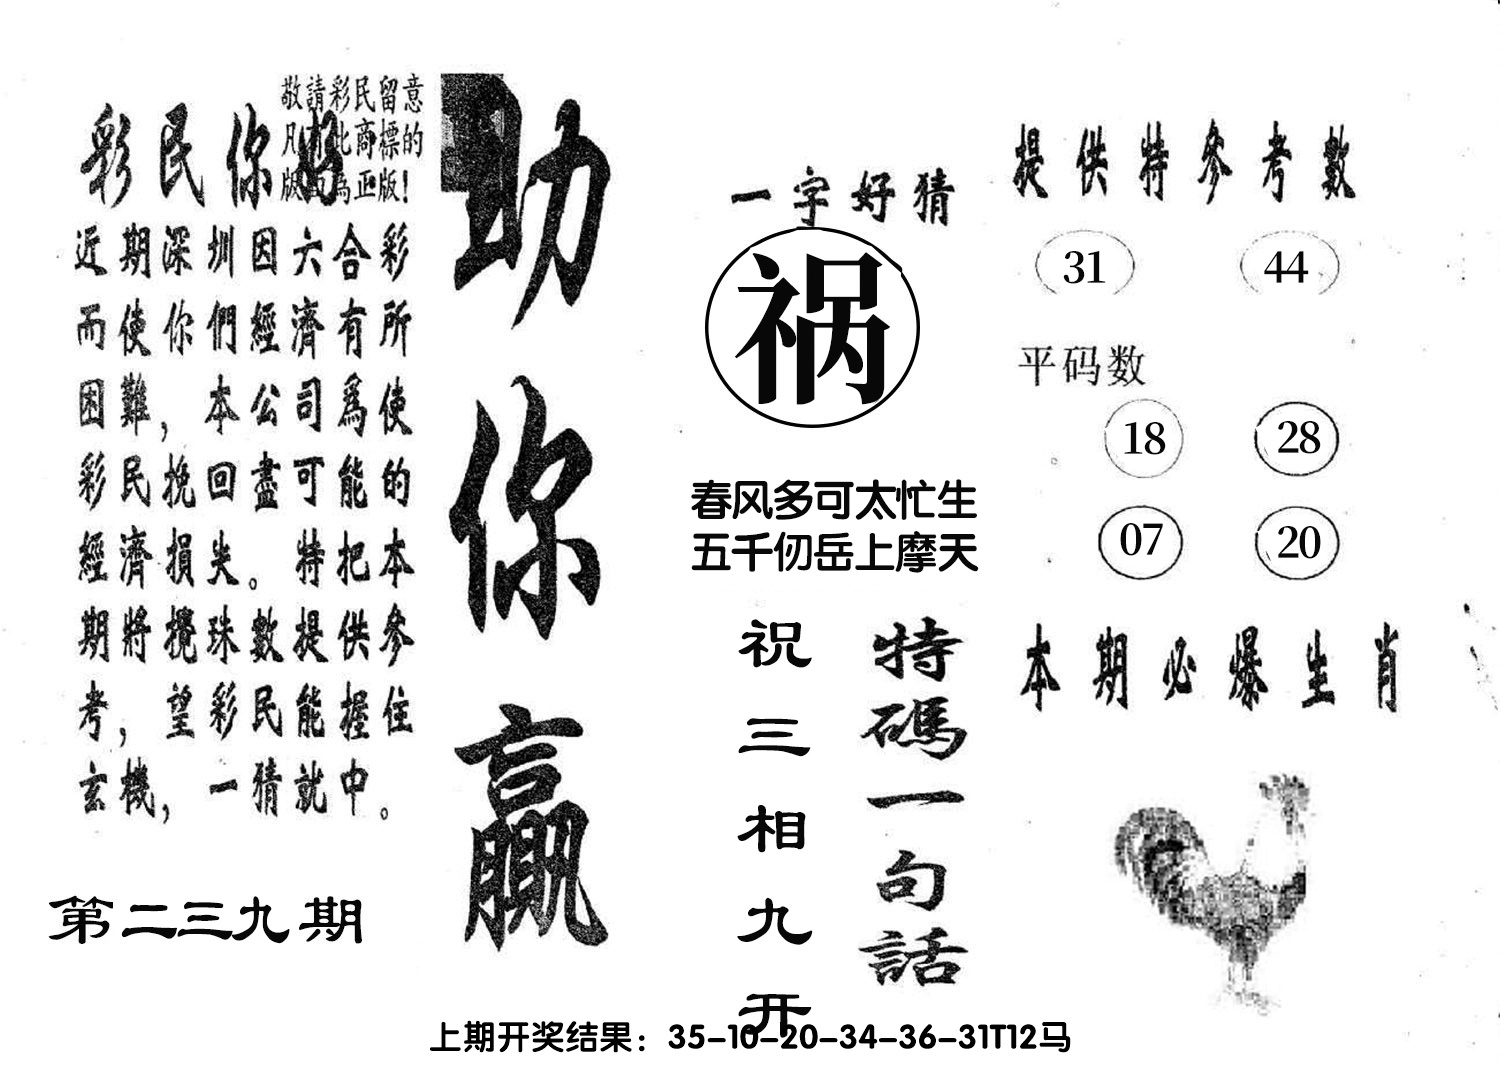 敬請彩民留意
凡有此商標的
版面為正版！
彩民你好
近期深圳因六合彩
而使你們經濟有所
困難，本公司爲使
彩民挽回盡可能的
經濟損失。特把本
期將攪珠數提供參
考，望彩民能握住
玄機，一猜就中。
第二三九期
助你贏
一字好猜
祸
春风多可太忙生
五千仞岳上摩天
特碼一句話
祝三相九开
提供特參考數
31 44
平码数
18 28
07 20
本期必爆生肖
上期开奖结果：35-10-20-34-36-31T12马